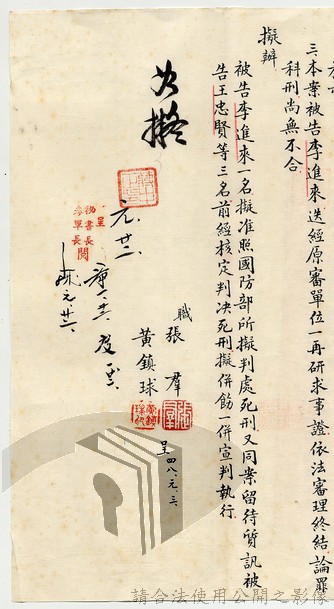 三、本案被告李進來迭經原審單位一再研求事證依法審理終結論罪
科刑尚無不合
擬辦
被告李進來一名擬准照國防部所擬判處死刑又同案留待質訊被
告王忠賢等三名前經核定判決死刑擬併飭一併宣判執行
職 張羣
黃鎮球
呈 四八、元、三
如擬
元、廿二
呈
秘書長
參軍長
閱
請合法使用公開之影像